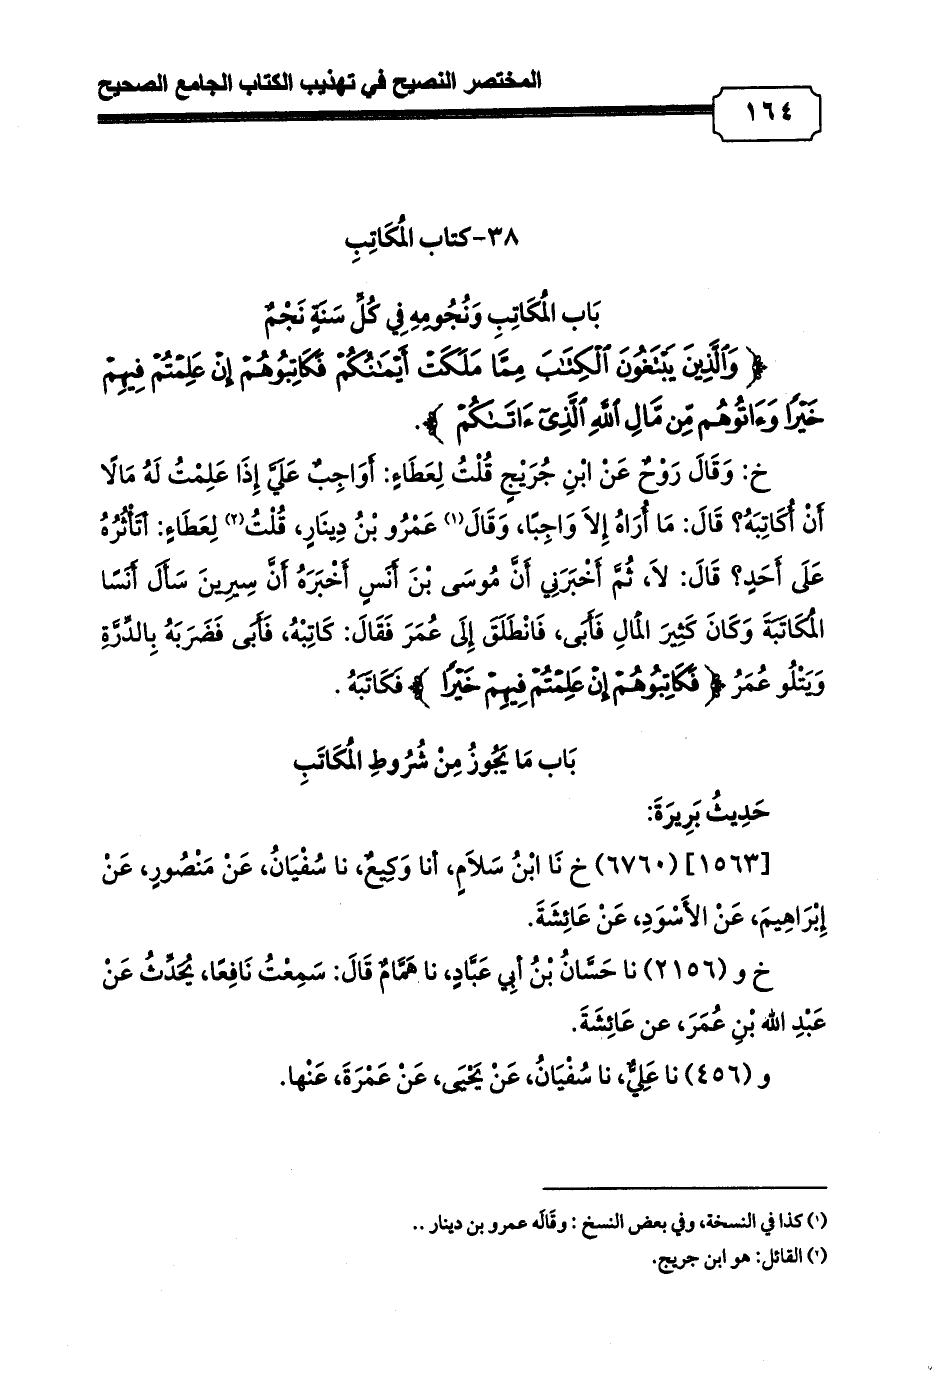 المختصر النصيح في تهذيب الكتاب الجامع الصحيح
١٦٤
٣٨- كتاب المُكَاتِبِ
بَاب المُكَاتِبِ وَنُجُومِهِ فِي كُلِّ سَنَةٍ نَجْمٌ
﴿ وَٱلَّذِينَ يَبْتَغُونَ ٱلْكِتَٰبَ مِمَّا مَلَكَتْ أَيْمَٰنُكُمْ فَكَاتِبُوهُمْ إِنْ عَلِمْتُمْ فِيهِمْ
خَيْرًا وَءَاتُوهُم مِّن مَّالِ ٱللَّهِ ٱلَّذِىٓ ءَاتَىٰكُمْ ﴾.
خ: وَقَالَ رَوْحٌ عَنْ ابْنِ جُرَيْجٍ قُلْتُ لِعَطَاءٍ: أَوَاجِبٌ عَلَيَّ إِذَا عَلِمْتُ لَهُ مَالًا
أَنْ أُكَاتِبَهُ؟ قَالَ: مَا أُرَاهُ إِلاَ وَاجِبًا، وَقَالَ(١) عَمْرُو بْنُ دِينَارٍ، قُلْتُ(٢) لِعَطَاءٍ: أَتَأْثُرُهُ
عَلَى أَحَدٍ؟ قَالَ: لاَ، ثُمَّ أَخْبَرَنِي أَنَّ مُوسَى بْنَ أَنَسٍ أَخْبَرَهُ أَنَّ سِيرِينَ سَأَلَ أَنَسًا
المُكَاتَبَةَ وَكَانَ كَثِيرَ المَالِ فَأَبَى، فَانْطَلَقَ إِلَى عُمَرَ فَقَالَ: كَاتِبْهُ، فَأَبَى فَضَرَبَهُ بِالدِّرَّةِ
وَيَتْلُو عُمَرُ ﴿ فَكَاتِبُوهُمْ إِنْ عَلِمْتُمْ فِيهِمْ خَيْرًا ﴾ فَكَاتَبَهُ.
بَاب مَا يَجُوزُ مِنْ شُرُوطِ المُكَاتَبِ
حَدِيثُ بَرِيرَةَ:
[١٥٦٣] (٦٧٦٠) خ نَا ابْنُ سَلاَمٍ، أنا وَكِيعٌ، نا سُفْيَانُ، عَنْ مَنْصُورٍ، عَنْ
إِبْرَاهِيمَ، عَنْ الأَسْوَدِ، عَنْ عَائِشَةَ.
خ و (٢١٥٦) نا حَسَّانُ بْنُ أبِي عَبَّادٍ، نا هَمَّامٌ قَالَ: سَمِعْتُ نَافِعًا، يُحَدِّثُ عَنْ
عَبْدِ الله بْنِ عُمَرَ، عن عَائِشَةَ.
و (٤٥٦) نا عَلِيٌّ، نا سُفْيَانُ، عَنْ يَحْيَى، عَنْ عَمْرَةَ، عَنْها.
(١) كذا في النسخة، وفي بعض النسخ : وقَالَه عمرو بن دينار ..
(٢) القائل: هو ابن جريج.